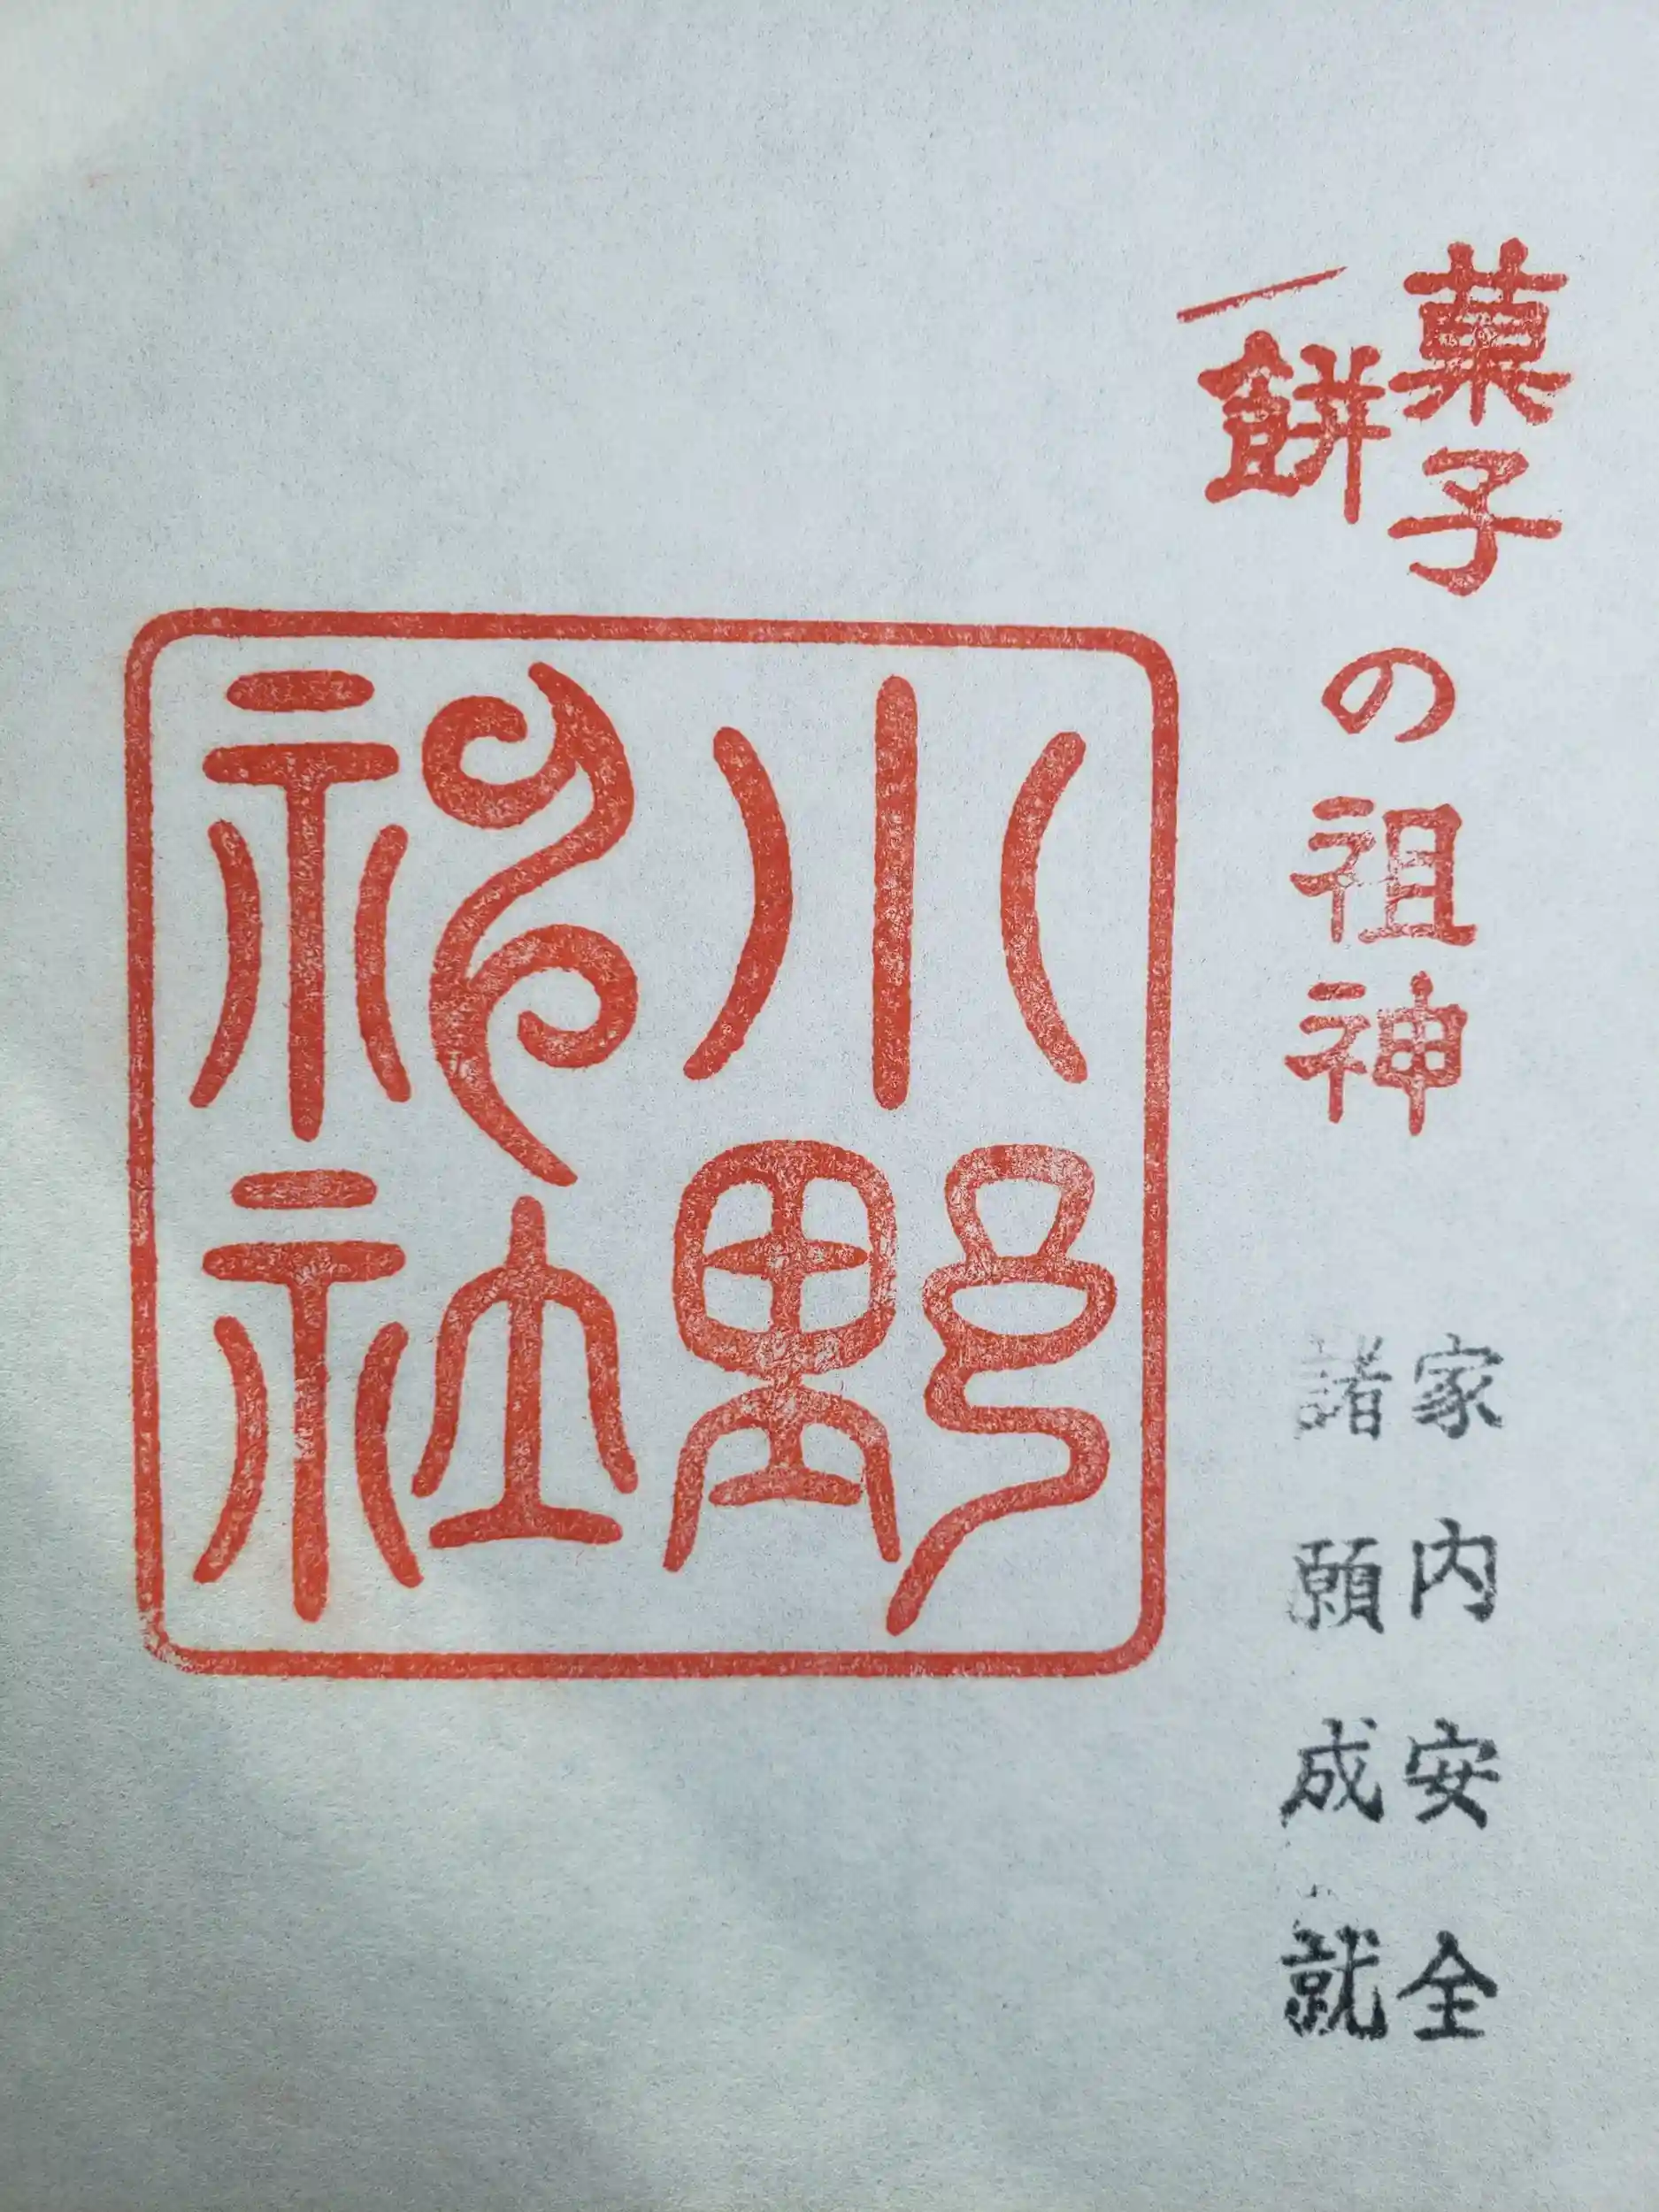 菓子
餅
の祖神
家内安全
諸願成就
小野
神社